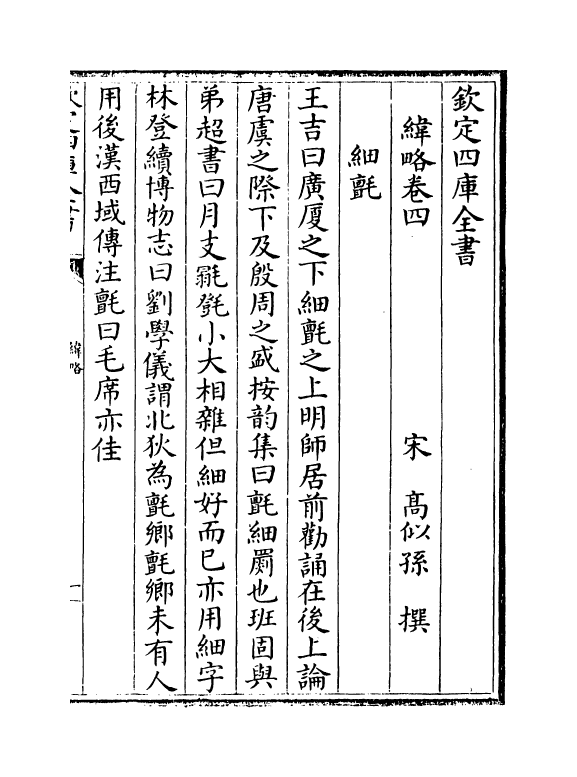 欽定四庫全書
緯略卷四 宋 髙似孫 撰
細氈
王吉曰廣厦之下細氈之上明師居前勸誦在後上論
唐虞之際下及殷周之盛按韵集曰氈細罽也班固與
弟超書曰月支毾㲪小大相雜但細好而已亦用細字
林登續博物志曰劉學儀謂北狄為氈鄉氈鄉未有人
用後漢西域傳注氈曰毛席亦佳
緯略
一